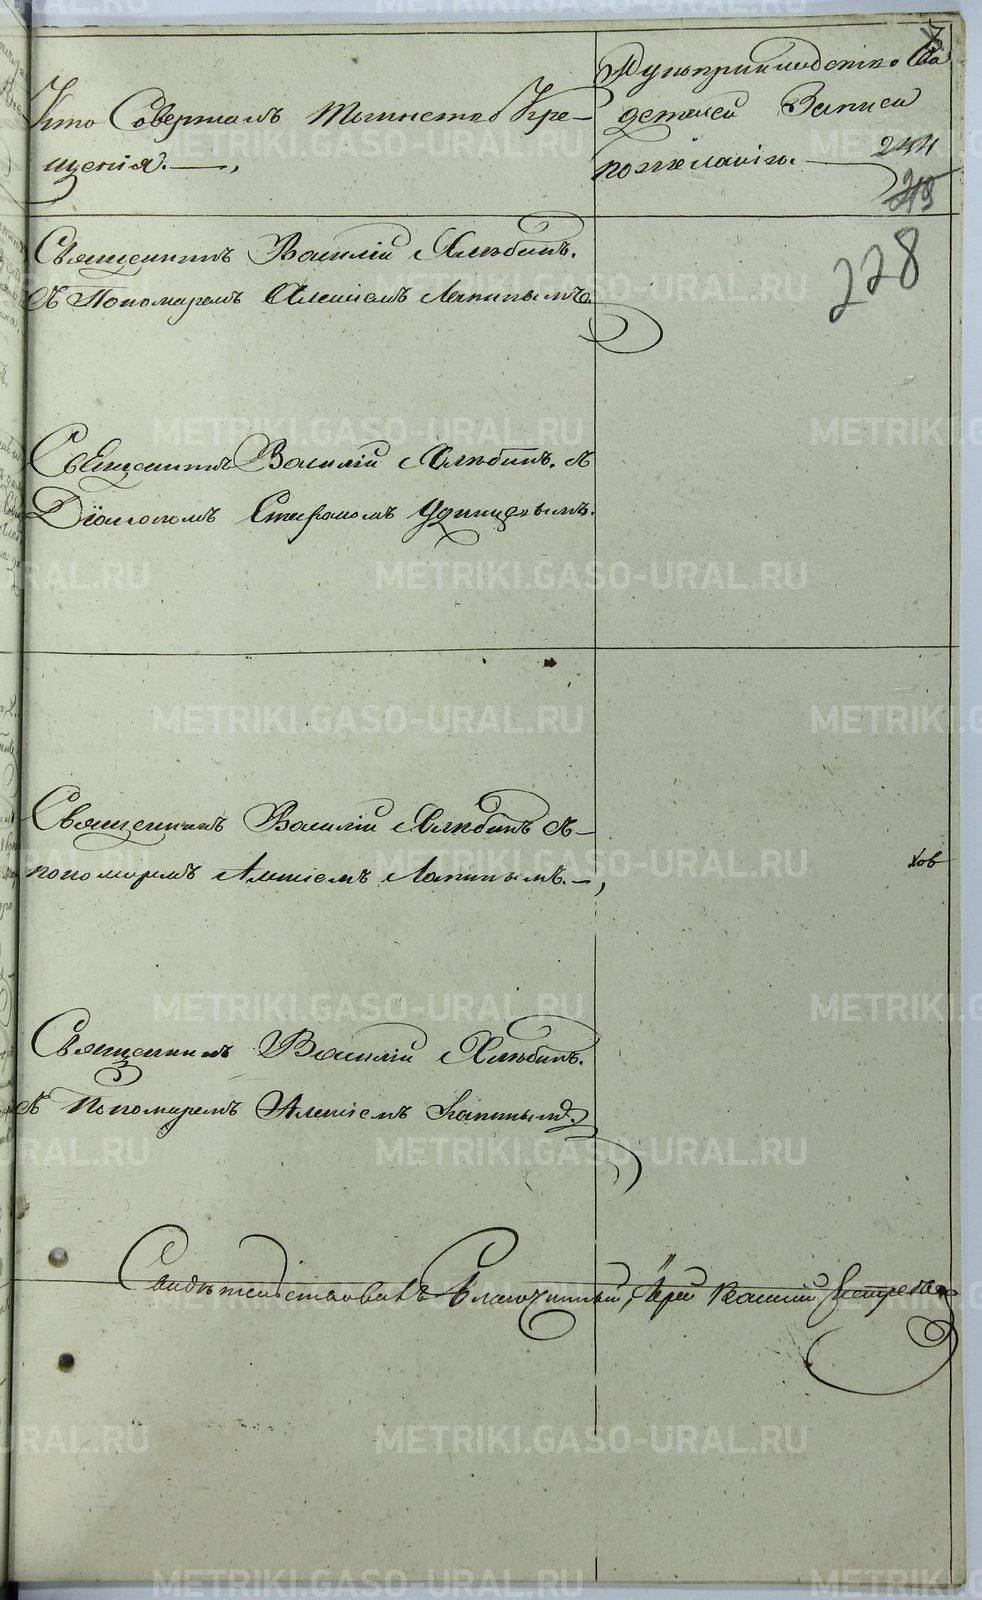 Кто Совершалъ таинство Кре-
щенія.
Рукоприкладство Сви
детелей Записи
по желанію.
244
228
Священникъ Василій Хлѣбинъ.
Съ Пономаремъ Алексіемъ Лапинымъ
Священникъ Василій Хлѣбинъ. съ
Діакономъ Стефаномъ Удинцовымъ.
Священникъ Василій Хлѣбинъ съ
пономаремъ Алексіемъ Лапинымъ.
ховъ
Священникъ Василій Хлѣбинъ.
Съ Пономаремъ Алексіемъ Лапинымъ.
Свидѣтельствовалъ Благочинный, Іерей Василій
METRIKI.GASO-URAL.RU